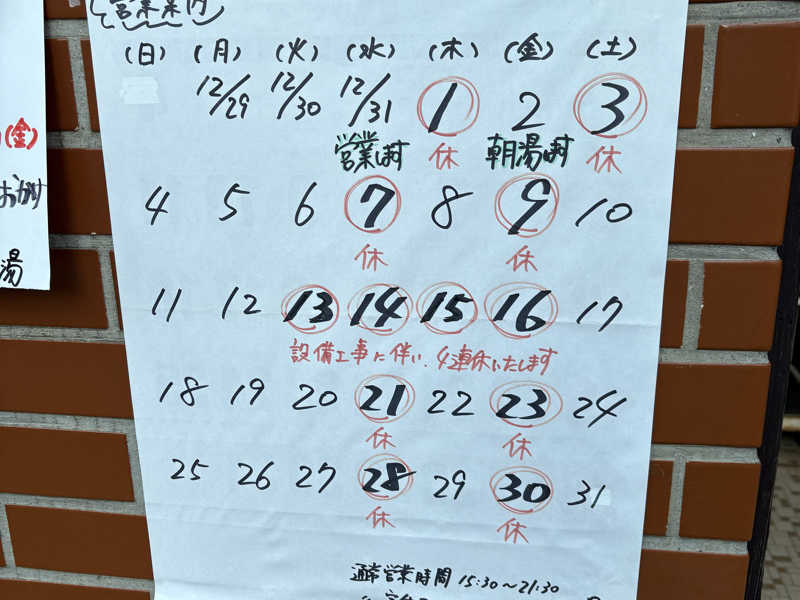 営業案内
(日) (月) (火) (水) (木) (金) (土)
12/29 12/30 12/31 1 2 3
営業します 休 朝湯あります 休
4 5 6 7 8 9 10
休 休
11 12 13 14 15 16 17
設備工事に伴い、4連休いたします
18 19 20 21 22 23 24
休 休
25 26 27 28 29 30 31
休 休
通常営業時間 15:30〜21:30
(金)
湯